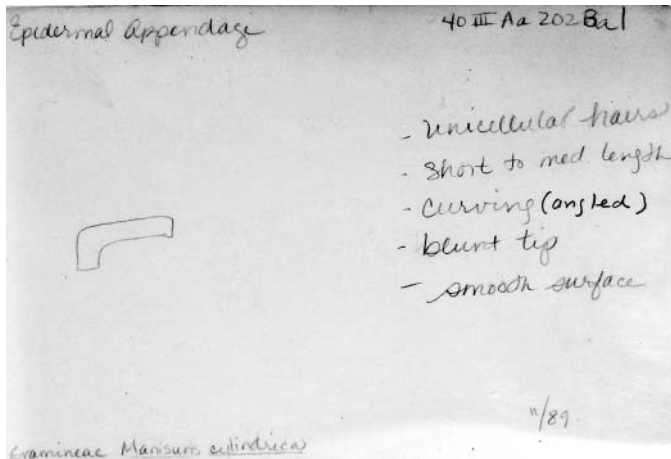 Epidermal Appendage
40 III Aa 202 Ba1
- Unicellular hairs
- Short to med. length
- curving (angled)
- blunt tip
- smooth surface
11/89
Gramineae Manisuris cylindrica